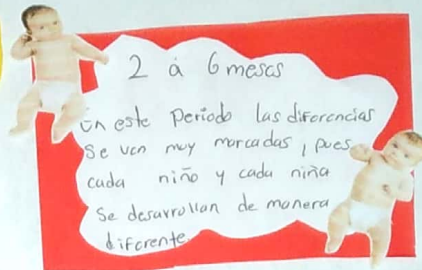 2 á 6 meses
En este Periodo las diferencias
Se ven muy marcadas, pues
cada niño y cada niña
Se desarrollan de manera
diferente.